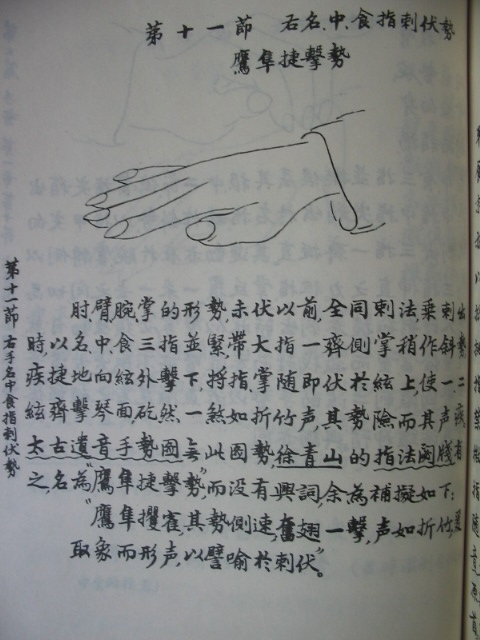 第十一節 右名、中、食指刺伏勢
鷹隼捷擊勢
肘、臂、腕、掌的形勢，未伏以前，全同刺法，乘刺出
時，以名、中、食三指並緊，帶大指一齊側掌稍作斜勢
疾捷地向絃外擊下，將指、掌隨即伏於絃上，使一、二
絃齊擊琴面，矻然一煞如折竹声，其勢險而其声疾
太古遺音手勢圖無此圖勢，徐青山的指法闕牋有
之，名為“鷹隼捷擊勢”，而没有興詞，余為補擬如下：
“鷹隼攫雀，其勢側速，奮翅一擊，声如折竹，
取象而形声，以譬喻於刺伏”。
第十一節 右手名中食指刺伏勢